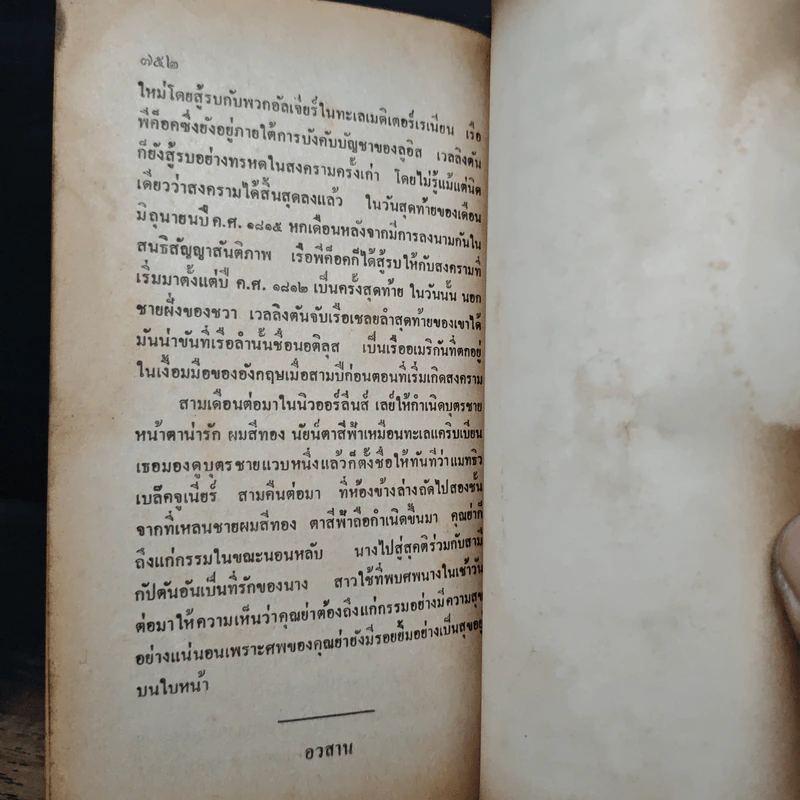 ๗๕๒
ใหม่โดยสู้รบกับพวกอัลเจ่ียร์ในทะเลเมดิเตอร์เรเนียน เรือ
พีค็อคซึ่งยังอยู่ภายใต้การบังคับบัญชาของลูอิส เวลลิงตัน
ก็ยังสู้รบอย่างทรหดในสงครามครั้งเก่า โดยไม่รู้แม้แต่นิด
เดียวว่าสงครามได้สิ้นสุดลงแล้ว ในวันสุดท้ายของเดือน
มิถุนายนปี ค.ศ. ๑๘๑๕ หกเดือนหลังจากมีการลงนามกันใน
สนธิสัญญาสันติภาพ เรือพีค็อคก็ได้สู้รบให้กับสงครามที่
เริ่มมาตั้งแต่ปี ค.ศ. ๑๘๑๒ เป็นครั้งสุดท้าย ในวันนั้น นอก
ชายฝั่งของชวา เวลลิงตันจับเรือเชลยลำสุดท้ายของเขาได้
มันน่าขันที่เรือลำนั้นชื่อนอติลุส เป็นเรืออเมริกันที่ตกอยู่
ในเงื้อมมือของอังกฤษเมื่อสามปีก่อนตอนที่เริ่มเกิดสงคราม
สามเดือนต่อมาในนิวออร์ลีนส์ เลย์ให้กำเนิดบุตรชาย
หน้าตาน่ารัก ผมสีทอง นัยน์ตาสีฟ้าเหมือนทะเลแคริบเบียน
เธอมองดูบุตรชายแวบหนึ่งแล้วก็ตั้งชื่อให้ทันทีว่าแมทธิว
เบล๊คจูเนียร์ สามคืนต่อมา ที่ห้องข้างล่างถัดไปสองชั้น
จากที่เหลนชายผมสีทอง ตาสีฟ้าถือกำเนิดขึ้นมา คุณย่าก็
ถึงแก่กรรมในขณะนอนหลับ นางไปสู่สุคติร่วมกับสามี
กัปตันอันเป็นที่รักของนาง สาวใช้ที่พบศพนางในเช้าวัน
ต่อมาให้ความเห็นว่าคุณย่าต้องถึงแก่กรรมอย่างมีความสุข
อย่างแน่นอนเพราะศพของคุณย่ายังมีรอยยิ้มอย่างเป็นสุขอยู่
บนใบหน้า
อวสาน